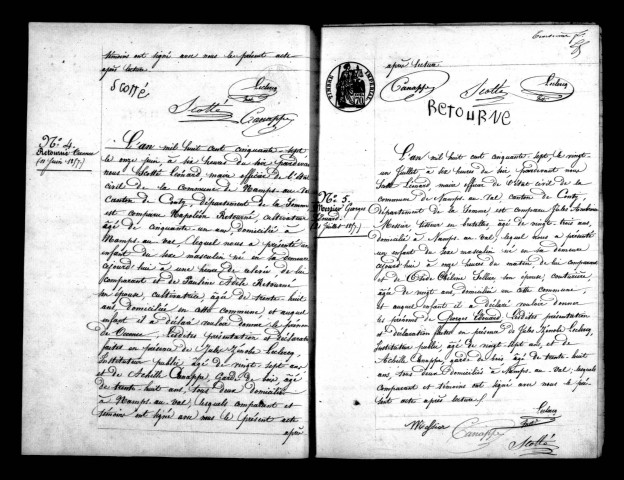 témoins ont signé avec nous le présent acte
après lecture.
Scotté
Leclercq
Scotté
Canappe
N° 4.
Retourné
(11 Juin 1857)
L'an mil huit cent cinquante sept
le onze Juin à six heures du soir pardevant
nous Scotté Léonard maire officier de l'État
civil de la commune de Namps au val
canton de Conty, département de la Somme
est comparu Napoléon Retourné, cultivateur
âgé de cinquante un ans domicilié à
Namps au val, lequel nous a présenté un
enfant du sexe masculin né en sa demeure
aujourd'hui à une heure de relevée, de lui
comparant et de Pauline Adèle Retourné
son épouse, cultivatrice, âgée de trente huit
ans domiciliée en cette commune et auquel
enfant il a déclaré vouloir donner le prénom
de Les dites présentation et déclaration
faites en présence de Jules Leclercq,
Instituteur public, âgé de vingt sept ans
et de Achille Canappe, Garde de bois, âgé
de trente huit ans, tous deux domiciliés
à Namps au val, lesquels comparant et
témoins ont signé avec nous le présent acte
après
après lecture.
TIMBRE IMPÉRIAL
Canappe
Scotté
Leclercq
RETOURNE
N° 5.
Messier Georges
Edouard
Juillet 1857)
L'an mil huit cent cinquante sept, le vingt
un Juillet à six heures du soir pardevant nous
Scotté Léonard maire officier de l'État civil de la
commune de Namps au val canton de Conty,
département de la Somme est comparu Jules
Messier tisseur en bretelles, âgé de vingt-trois ans
domicilié à Namps au val, lequel nous a présenté
un enfant du sexe masculin né en sa demeure
aujourd'hui à onze heures du matin de lui comparant
et de son épouse, couturière,
âgée de vingt ans domiciliée en cette commune
et auquel enfant il a déclaré vouloir donner
les prénoms de Georges Edouard Les dites présentation
et déclaration faites en présence de Jules Leclercq,
Instituteur public, âgé de vingt sept ans, et de
Achille Canappe, garde de bois âgé de trente huit
ans, tous deux domiciliés à Namps au val, lesquels
comparant et témoins ont signé avec nous le pré
sent acte après lecture.
Messier
Canappe
Leclercq
Scotté